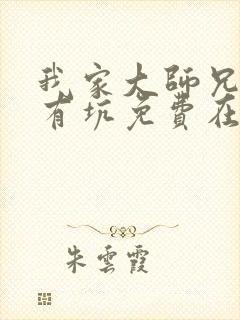 我家大師兄
有坑免費在
朱雲霞